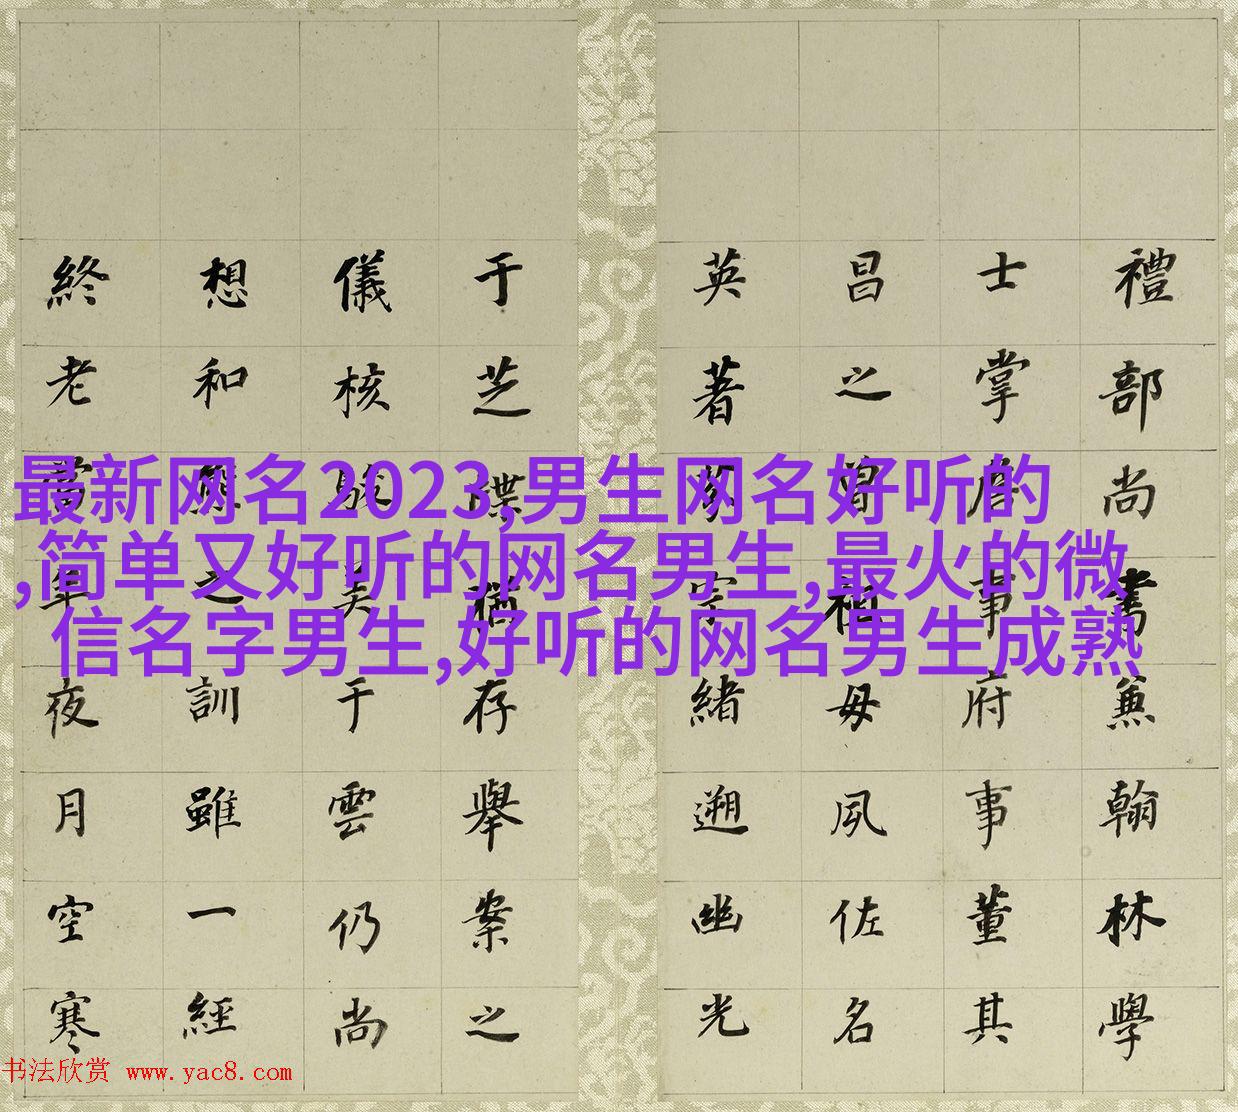 最新网名2023,男生网名好听的
,简单又好听的网名男生,最火的微
信名字男生,好听的网名男生成熟
禮部尚書兼翰林學
士掌詹事府事董其
昌之曾祖母夙佐名
英著緒遡幽光
于芝存舉案之
儀核美于雲仍尚
想和熊之訓雖一經
終老當年夜月空寒
书法欣赏 www.yac8.com